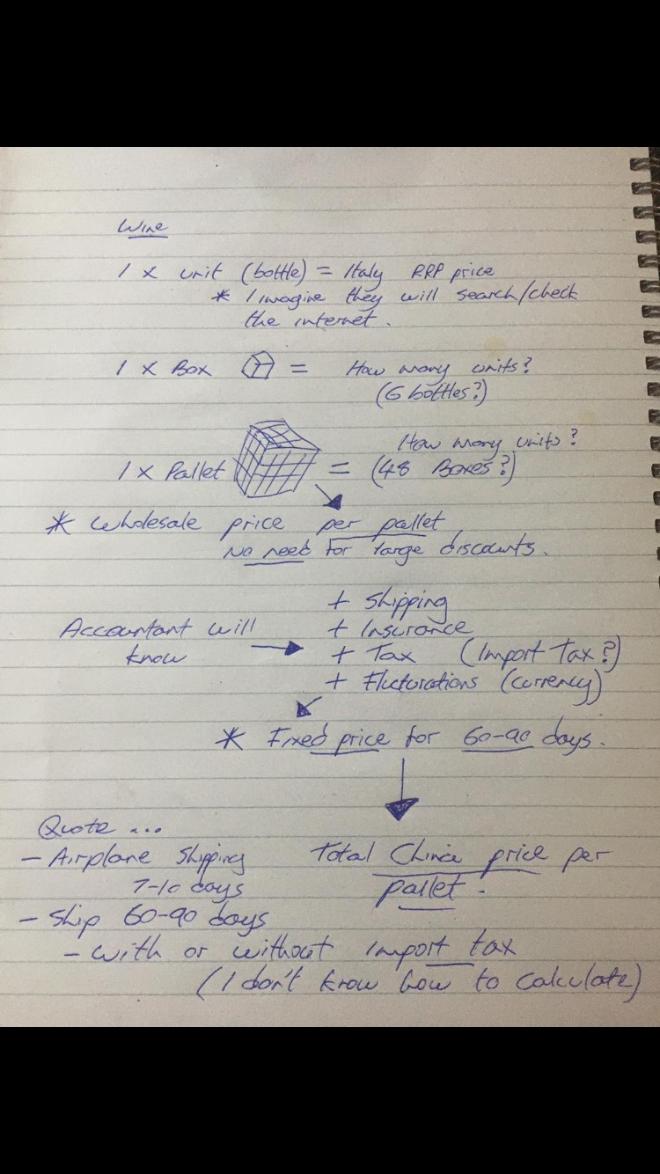 Wine
1 x unit (bottle) = Italy RRP price
* I imagine they will search/check
the internet.
1 x Box = How many units?
(6 bottles?)
How many units?
1 x Pallet = (48 Boxes?)
* Wholesale price per pallet
No need for large discounts.
+ Shipping
Accountant will + Insurance
know + Tax (Import Tax?)
+ Flucturations (currency)
* Fixed price for 60-90 days.
Quote ...
- Airplane Shipping Total China price per
7-10 days pallet.
- Ship 60-90 days
- with or without import tax
(I don't know how to calculate)